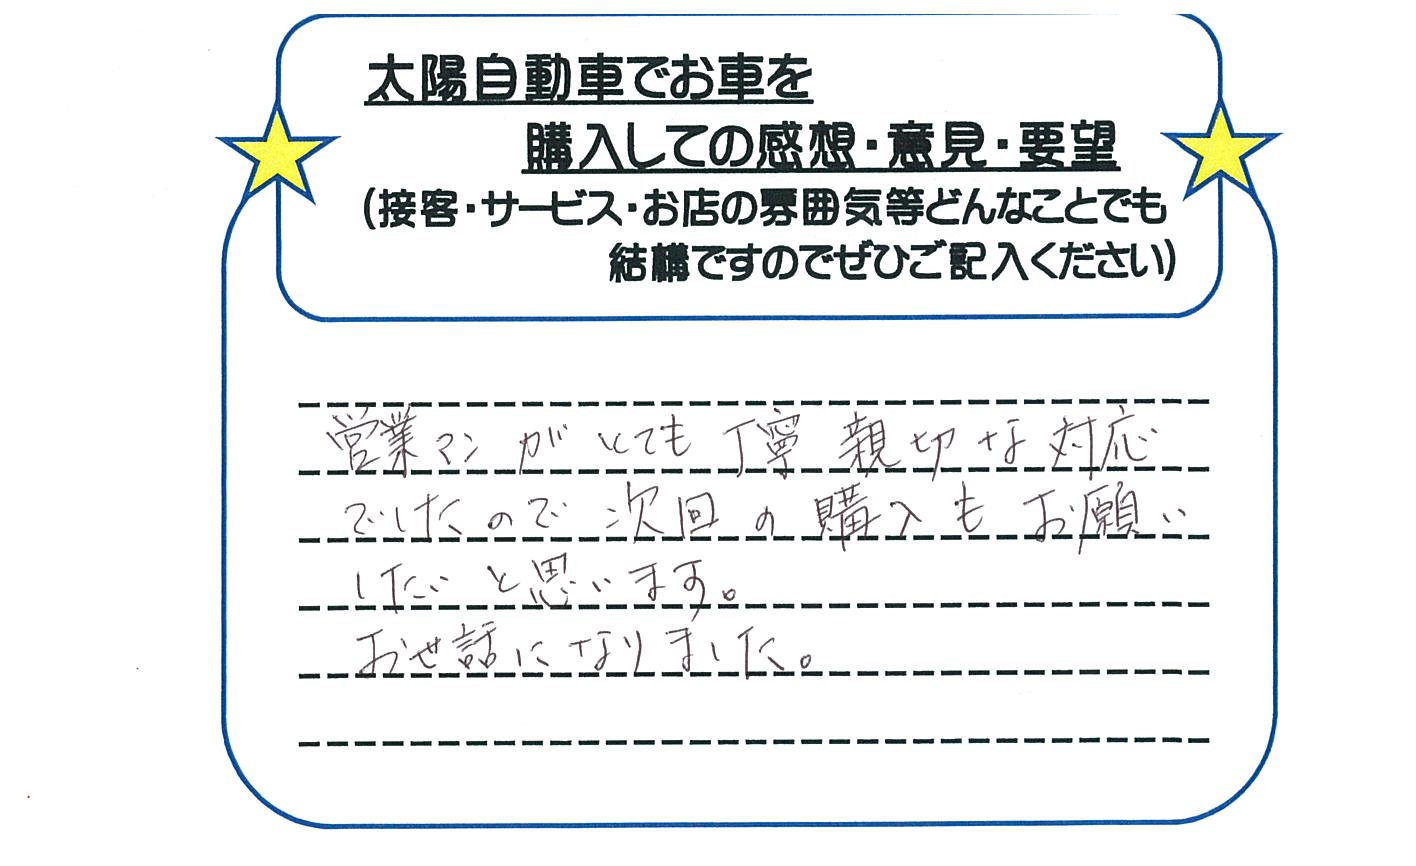 太陽自動車でお車を
購入しての感想・意見・要望
（接客・サービス・お店の雰囲気等どんなことでも
結構ですのでぜひご記入ください）
営業マンがとても丁寧親切な対応
でしたので次回の購入もお願い
したいと思います。
お世話になりました。